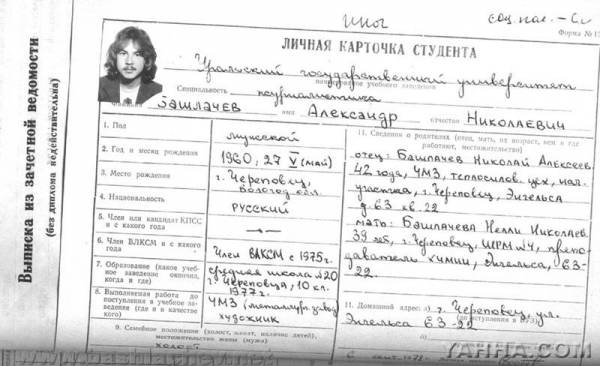 иног
соц. пол. – сл
Форма № 1
ЛИЧНАЯ КАРТОЧКА СТУДЕНТА
Уральский государственный университет
наименование учебного заведения
Специальность журналистика
Фамилия Башлачев имя Александр отчество Николаевич
1. Пол мужской
2. Год и месяц рождения 1960, 27 V (май)
3. Место рождения г. Череповец, Вологод. обл.
4. Национальность русский
5. Член или кандидат КПСС и с какого года —
6. Член ВЛКСМ и с какого года Член ВЛКСМ с 1975г.
7. Образование (какое учебное заведение окончил, когда и где) средняя школа №20 г. Череповца, 10 кл. 1977г.
8. Выполняемая работа до поступления в учебное заведение (где и в качестве кого) ЧМЗ (металлург. завод) художник
9. Семейное положение (холост, женат, наличие детей), местожительство жены (мужа)
холост
11. Сведения о родителях (отец, мать, их возраст, кем и где работают, местожительство)
отец: Башлачев Николай Алексеев.
42 года, ЧМЗ, теплосилов. цех, нач.
участка, г. Череповец, Энгельса
д. 63 кв. 22
мать: Башлачева Нелли Николаев.
39 лет, г. Череповец, ШРМ №4, препо-
даватель химии, Энгельса, 63-
22.
11. Домашний адрес: а) г. Череповец, ул.
(до поступления в ВУЗ)
Энгельса 63-22
Выписка из зачетной ведомости
(без диплома недействительна)
www.bashlachev.net
YAHHA.COM